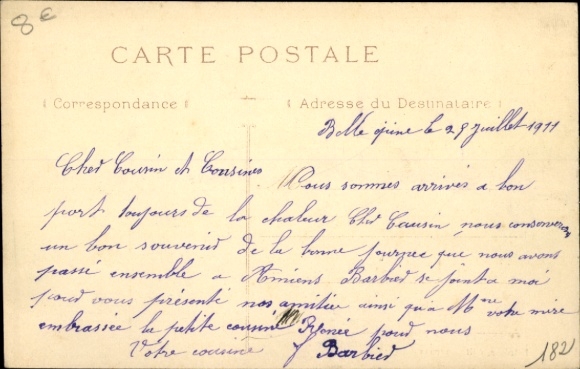 8 €
CARTE POSTALE
Correspondance
Adresse du Destinataire
Belle épine le 29 juillet 1911
Cher Cousin et Cousines
Nous sommes arrivés a bon
port toujours de la chaleur Cher Causin nous conserverons
un bon souvenir de la bonne journea que nous avons
passé ensemble a Amiens Barbier se joint a moi
pour vous présenté nos amitiée ainsi qu'a Mme votre mère
embrassée la petite cousine Renée pour nous
Votre cousine J Barbier
182